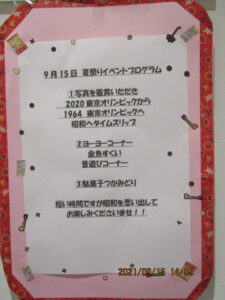 9月15日 夏祭りイベントプログラム
①写真を鑑賞いただき
2020東京オリンピックから
1964 東京オリンピックへ
昭和へタイムスリップ
②ヨーヨーコーナー
金魚すくい
昔遊びコーナー
③駄菓子つかみどり
短い時間ですが昭和を思い出して
お楽しみくださいませ!!